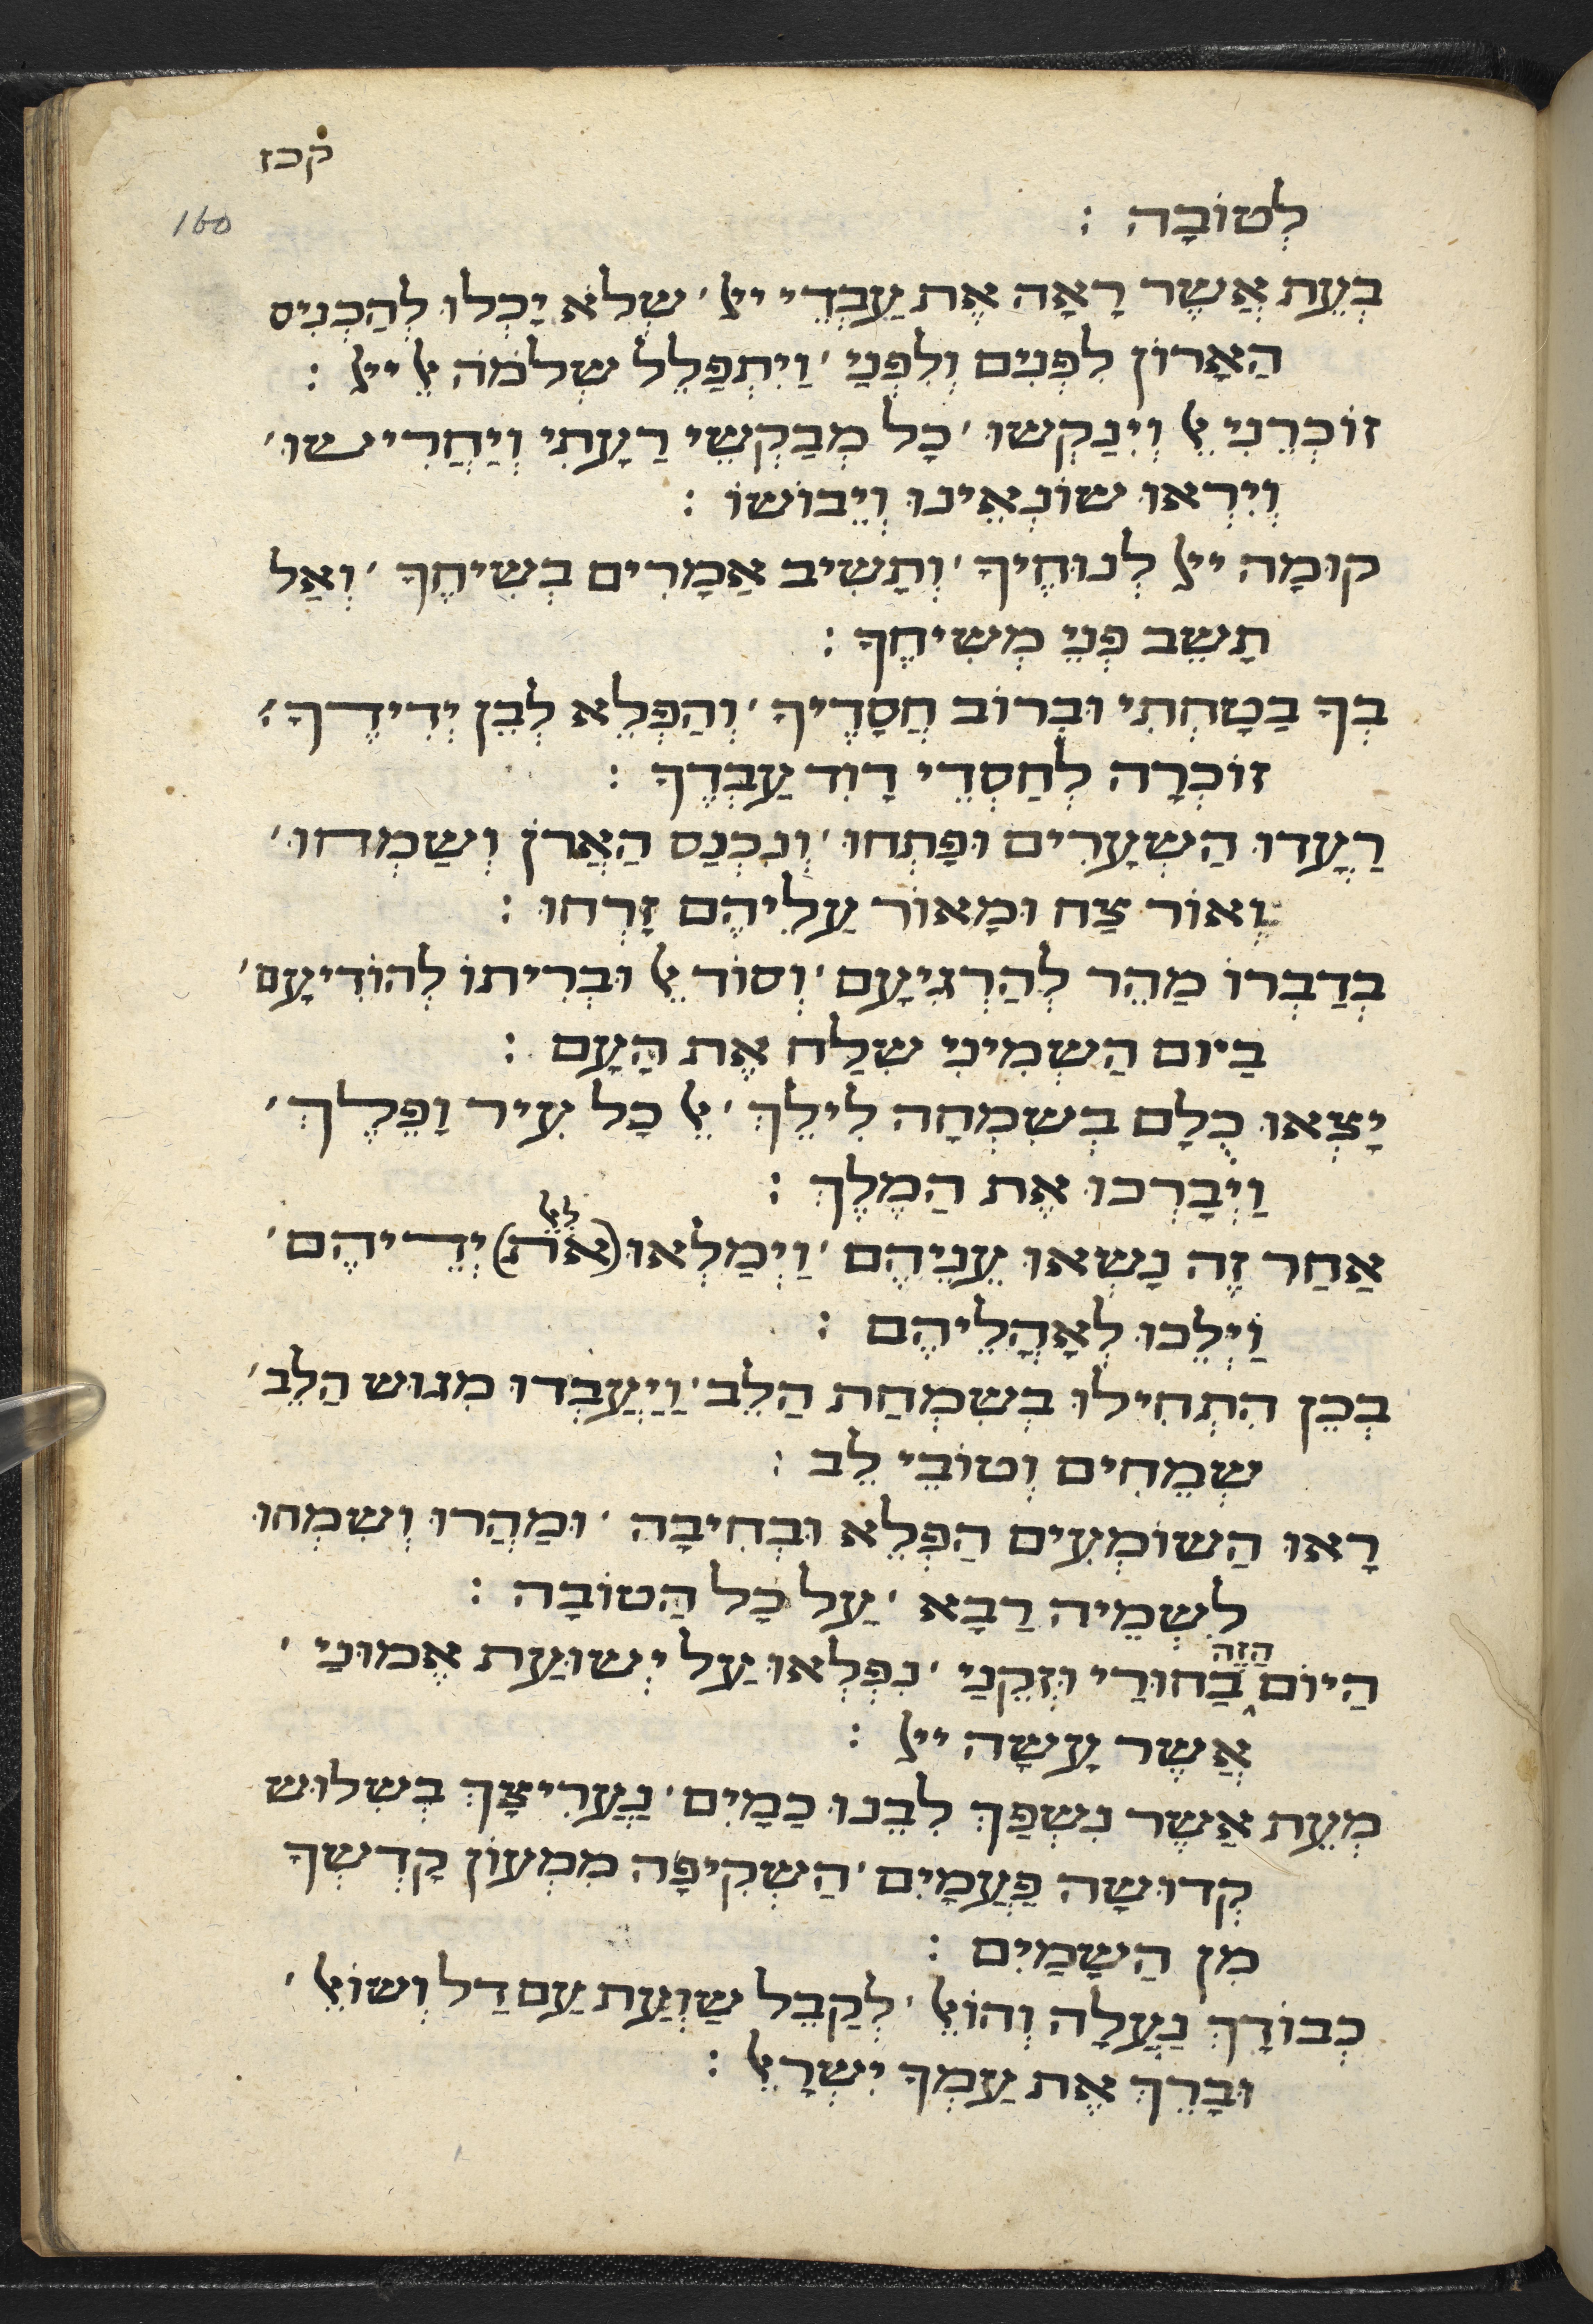 קכז
160
לְטוֹבָה :
בְּעֵת אֲשֶׁר רָאָה אֶת עַבְדֵי ייﭏ ׳ שְׁלֹא יָכְלוּ לְהַכְנִיס
הַאָרוֹן לִפְנִים וְלִפְנַי ׳ וַיִתְפַּלֵל שְׁלֹמֹה ﭏֵ ייﭏ :
זוֹכְרֵנִי ﭏֵ וְיִנַקְשׁוּ ׳ כָל מְבַקְשֵׁי רַעָתִי וְיַחֲרִישׁוּ ׳
וְיִרְאוּ שׂוֹנְאֵינוּ וְיֵבוֹשׁוֹ :
קוּמָה ייﭏ לְנוּחֶיךָ ׳ וְתָשִׁיב אַמָרִים בְּשִׂיחֶךָ ׳ וְאַל
תָשֵׁב פְּנֵי מְשִׁיחֶךָ :
בְּךָ בַטָחְתִי וּבְרוֹב חֲסָדֶיךָ ׳ וְהַפְלֵא לְבֵן יְדִידֶךָ ׳
זוֹכְרָה לְחַסְדֵי דָוִד עַבְדֶךָ :
רַעֲדוּ הַשְׁעָרִים וּפָתְחוּ ׳ וְנִכְנַס הַאֲרֹן וְשַׂמְחוּ ׳
וְאוֹר צַח וּמָאוֹר עַלִיהֶם זָרְחוּ :
בְּדַבְרוֹ מַהֵר לְהַרְגִיעָם ׳ וְסוֹד ﭏֵ וּבְרִיתוֹ לְהוֹדִיעָם ׳
בַיוֹם הַשְׁמִינִי שִׁלַח אֶת הָעָם :
יָצְאוּ כֻלָם בְּשִׂמְחָה לִילֵךְ ׳ ﭏֵ כָל עִיר וָפֶלֶךְ ׳
וַיְבָרְכוּ אֶת הַמֶלֶךְ :
אַחַר זֶה נָשְׂאוּ עֵנֵיהֶם ׳ וַיְמַלְאוּ (אֶת) לﭏֵ יְדֵיהֶם ׳
וַיְלֵכוּ לְאָהֳלֵיהֶם :
בְּכֵן הִתְחִילוּ בְּשִׂמְחַת הַלֵב ׳ וַיַעֲבְדוּ מִגוּשׁ הַלֵב ׳
שְׂמֵחִים וְטוֹבֵי לֵב :
רָאוּ הַשׁוֹמְעִים הַפְלֵא וּבְחִיבָה ׳ וּמַהֲרוּ וְשִׂמְחוּ
לִשְׁמֵיהּ רַבָא ׳ עַל כָל הַטוֹבָה :
הַיוֹם הַזֶה בַחוּרַי וּזְקֵנַי ׳ נִפְלְאוּ עַל יְשׁוּעַת אֶמוּנַי ׳
אֲשֶׁר עָשָׂה ייﭏ :
מְעֵת אַשֶׁר נִשְׁפַּךְ לִבֵנוּ כַמָיִם ׳ נַעֲרִיצָךְ בְּשִׁלוּשׁ
קְדוּשָׁה פַּעֲמָיִם ׳ הַשְׁקִיפָה מִמְעוֹן קָדְשְׁךָ
מִן הַשָׁמַיִם :
כְּבוֹדָךְ נַעֲלָה וְהוֹﭏֵ ׳ לְקַבֵל שַׁוְעַת עַם דַל וְשׁוֹﭏֵ ׳
וּבָרֵךְ אֶת עַמְךָ יִשְׂרָﭏֵ :